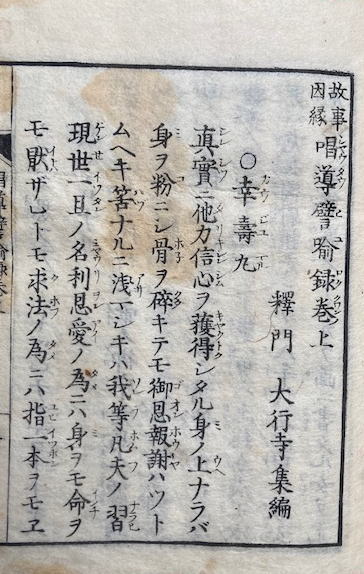 故事因縁 唱導譬喩録巻上
釋門 大行寺集編
○幸壽丸
真實ニ他力信心ヲ獲得シタル身ノ上ナラバ
身ヲ粉ニシ骨ヲ碎キテモ御恩報謝ハツト
ムヘキ筈ナルニ浅マシキハ我等凡夫ノ習
現世一旦ノ名利恩愛ノ為ニハ身ヲモ命ヲ
モ厭ザレトモ求法ノ為ニハ指一本ヲモヱ